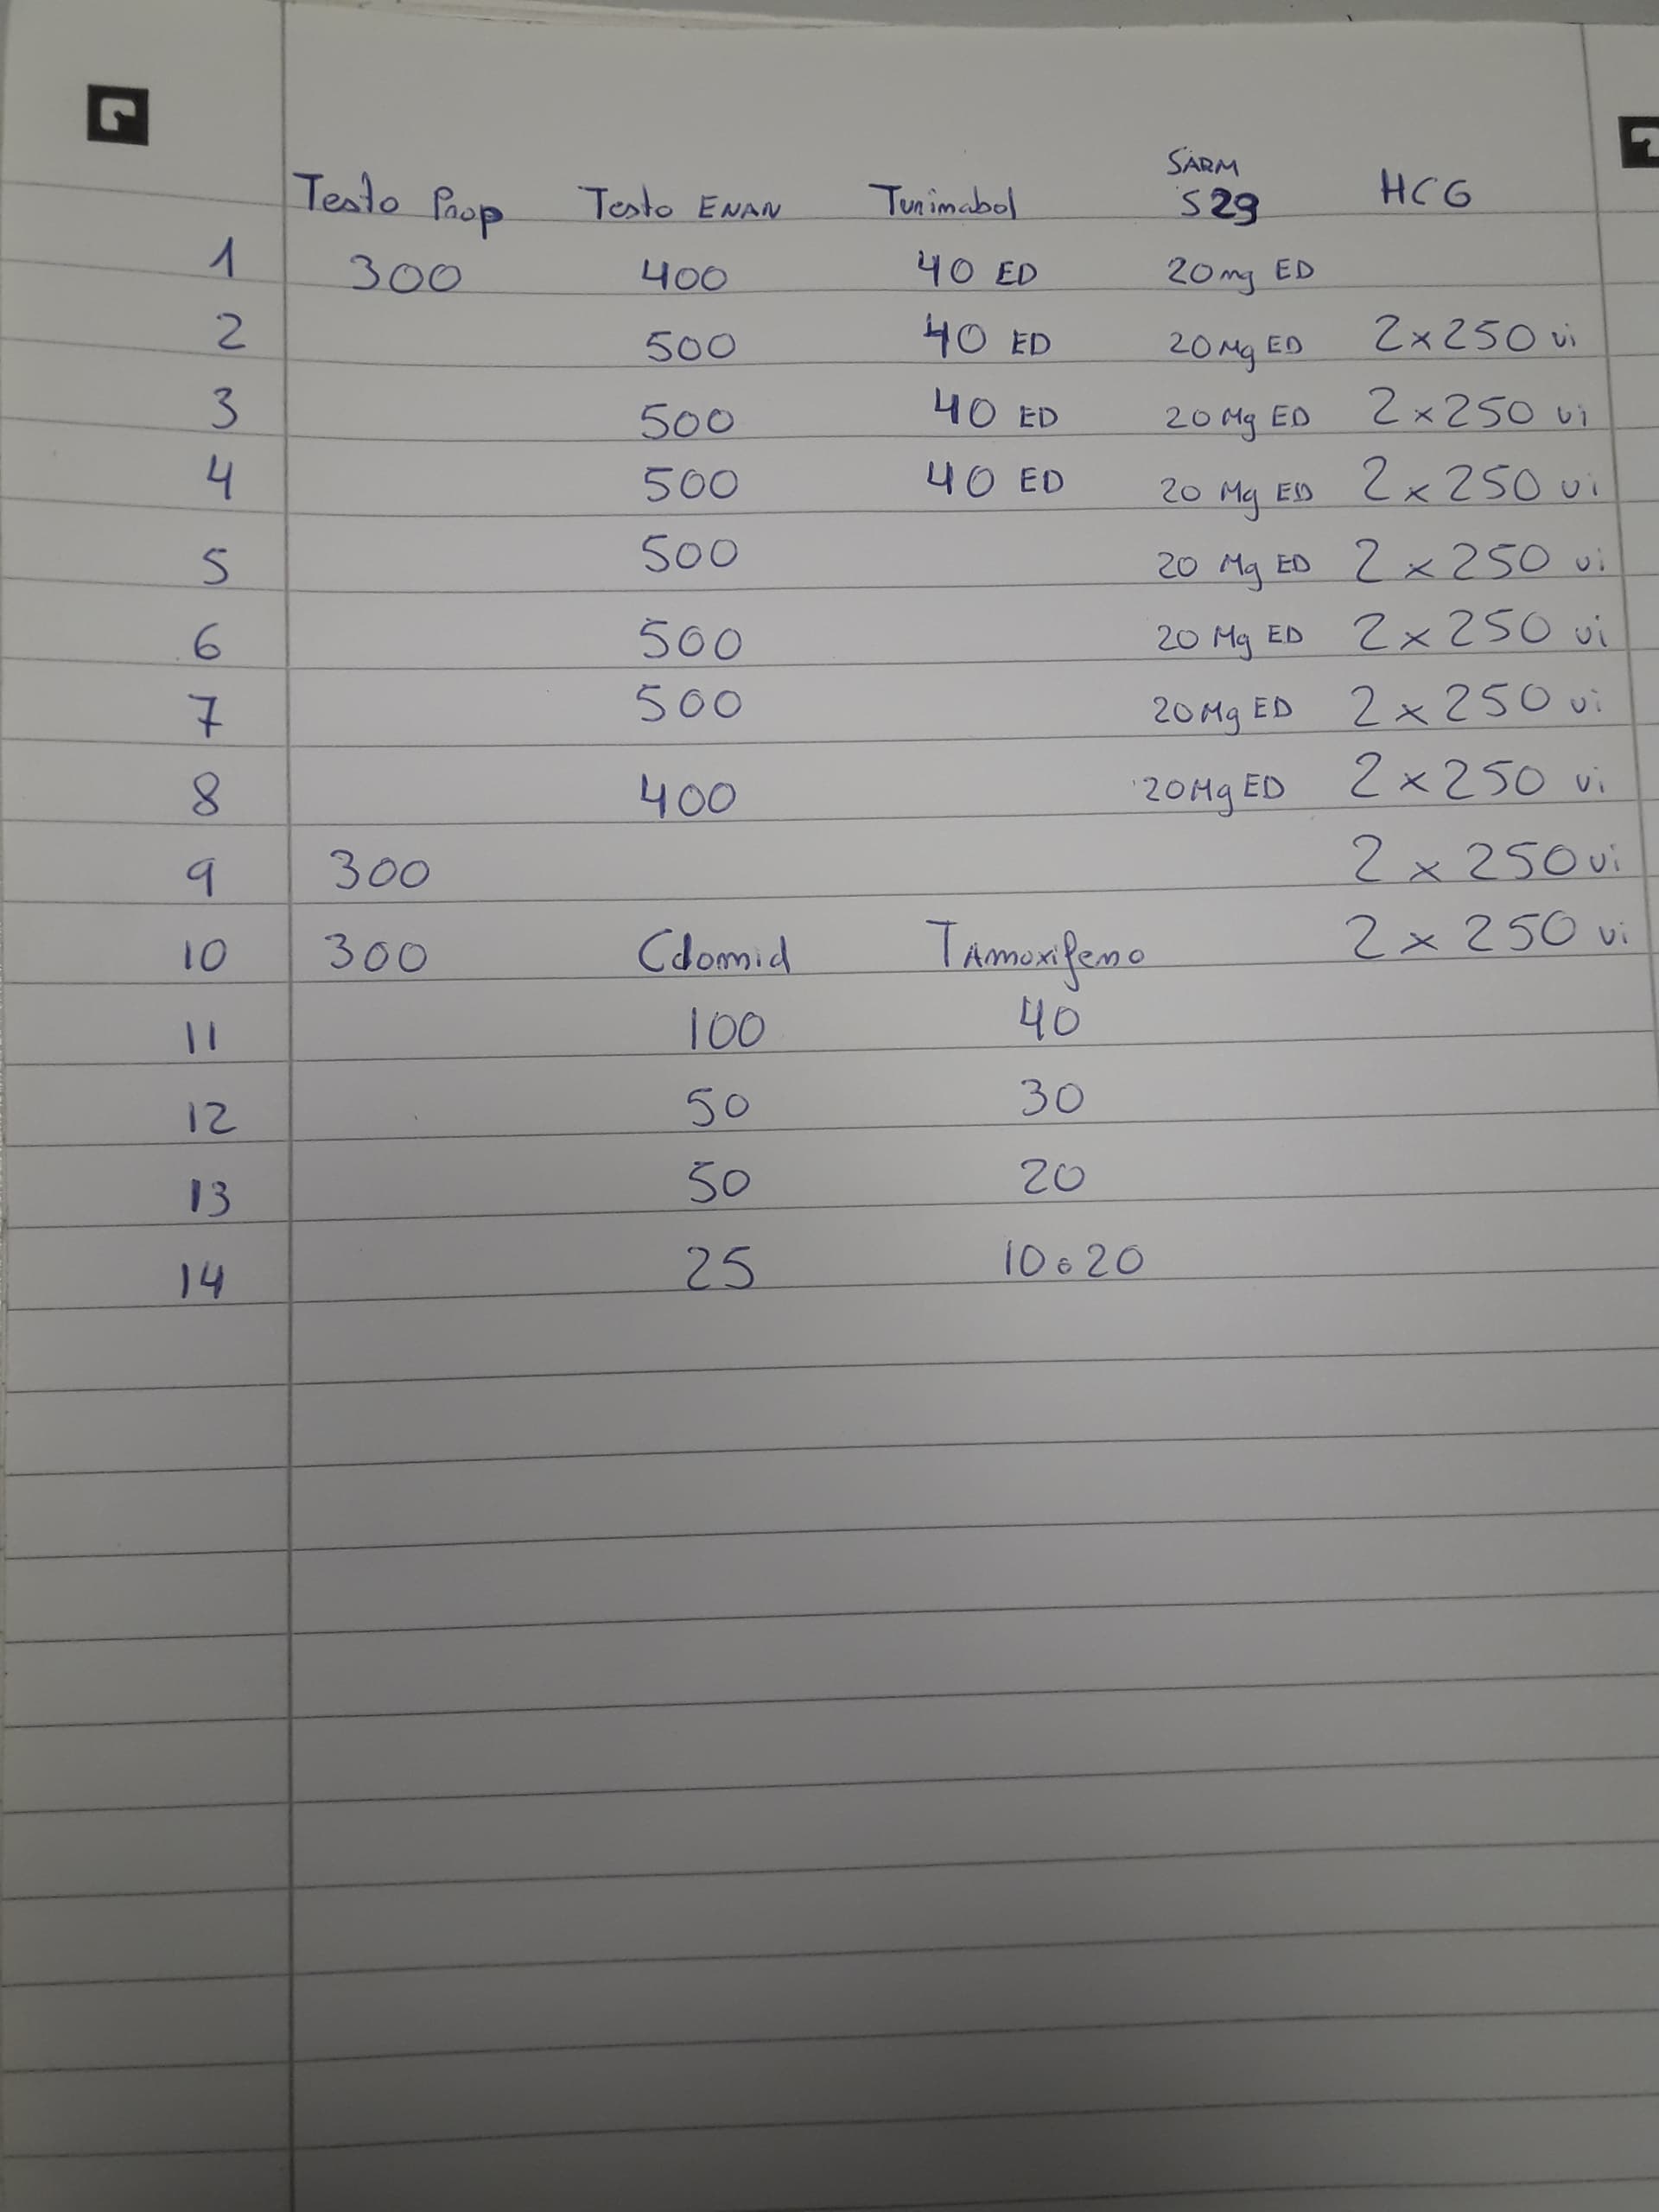 SARM
Testo Prop Testo ENAN Turimabol S29 HCG
1 300 400 40 ED 20mg ED
2 500 40 ED 20Mg ED 2x250 ui
3 500 40 ED 20 Mg ED 2x250 ui
4 500 40 ED 20 Mg ED 2x250 ui
5 500 20 Mg ED 2x250 ui
6 500 20 Mg ED 2x250 ui
7 500 20Mg ED 2x250 ui
8 400 20Mg ED 2x250 ui
9 300 2x250 ui
10 300 Clomid TAmoxifeno 2x250 ui
11 100 40
12 50 30
13 50 20
14 25 10 o 20